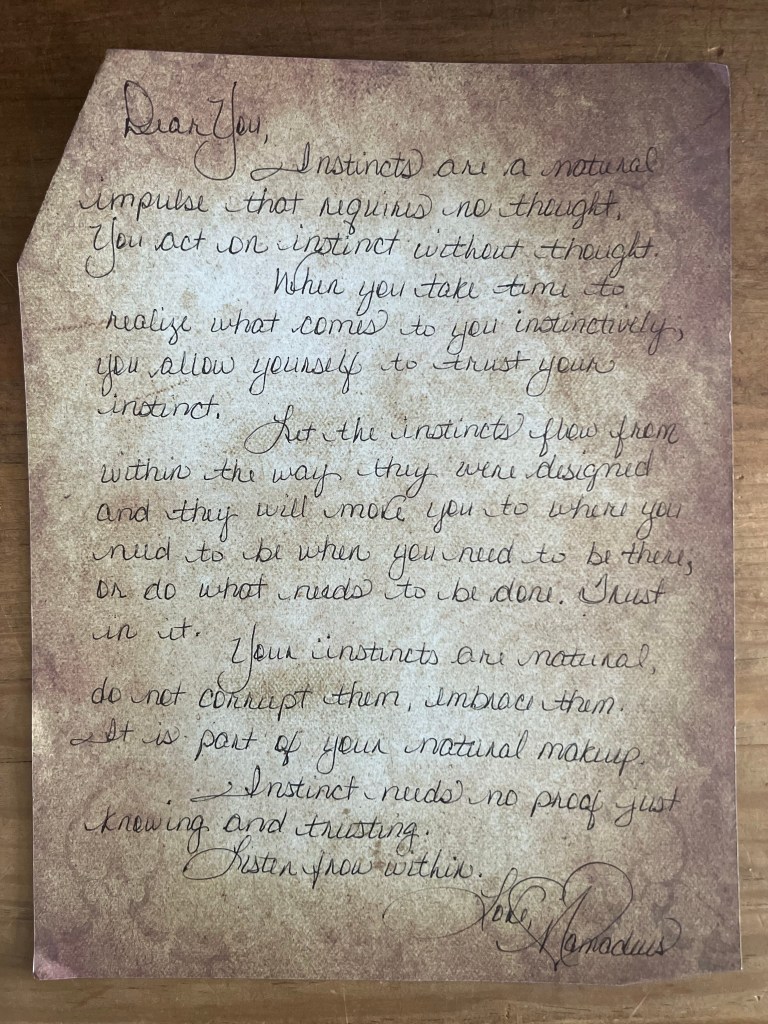 Dear You,
Instincts are a natural
impulse that requires no thought.
You act on instinct without thought.
When you take time to
realize what comes to you instinctively,
you allow yourself to trust your
instinct.
Let the instincts flow from
within the way they were designed
and they will move you to where you
need to be when you need to be there,
or do what needs to be done. Trust
in it.
Your instincts are natural,
do not corrupt them, embrace them.
It is part of your natural makeup.
Instinct needs no proof just
knowing and trusting.
Listen from within.
Love,